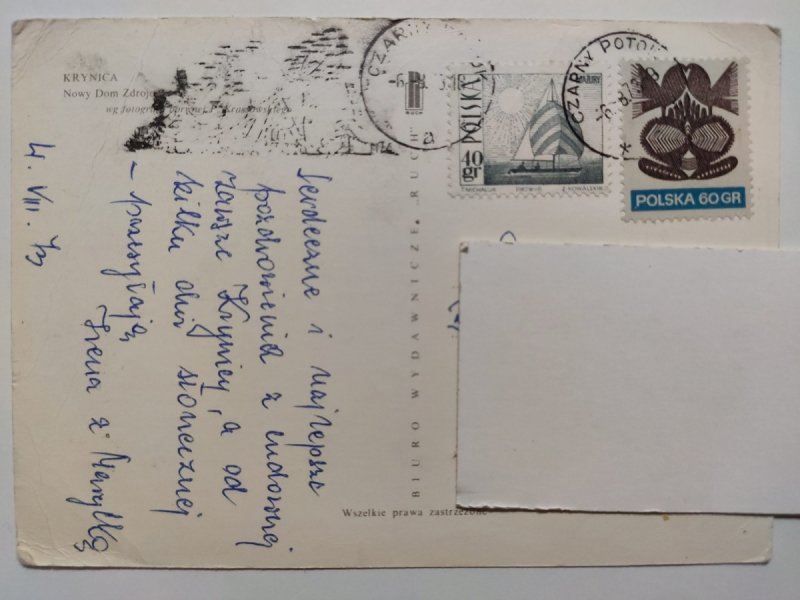 KRYNICA
Nowy Dom Zdrojo
wg fotografii
Serdeczne i najlepsze
pozdrowienia z cudownej
zawsze Krynicy, a od
kilku dni słonecznej
– przesyłają
Irena z Marylką
4. VIII. 73
BIURO WYDAWNICZE „RUCH"
RUCH
Wszelkie prawa zastrzeżone
CZARNY
-6.8.
a
POLSKA
40 gr
MAZURY
T.MICHALUK
Z.KOWALSKI
CZARNY POTO
-6.8.7
*
POLSKA 60 GR